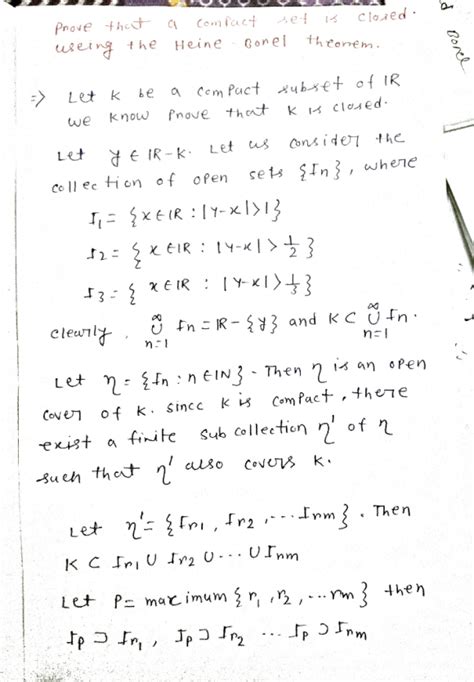 Prove that a compact set is closed.
useing the Heine-Borel theorem.
d Borel
⇒ Let K be a compact subset of IR
we know prove that K is closed.
Let y ∈ IR-K. Let us consider the
collection of open sets {In}, where
I1 = {x∈IR : |y-x|>1}
I2 = {x∈IR : |y-x|>1/2}
I3 = {x∈IR : |y-x|>1/3}
clearly, ∞∪n=1 In = IR-{y} and K⊂ ∞∪n=1 In.
Let η = {In : n∈IN}. Then η is an open
cover of K. since K is compact, there
exist a finite sub collection η' of η
such that η' also covers K.
Let η' = {Ir1, Ir2, ... Irm}. Then
K ⊂ Ir1 ∪ Ir2 ∪ ... ∪ Inm
Let P = maximum {r1, r2, ... rm} then
Ip ⊃ Ir1, Ip ⊃ Ir2 ... Ip ⊃ Inm